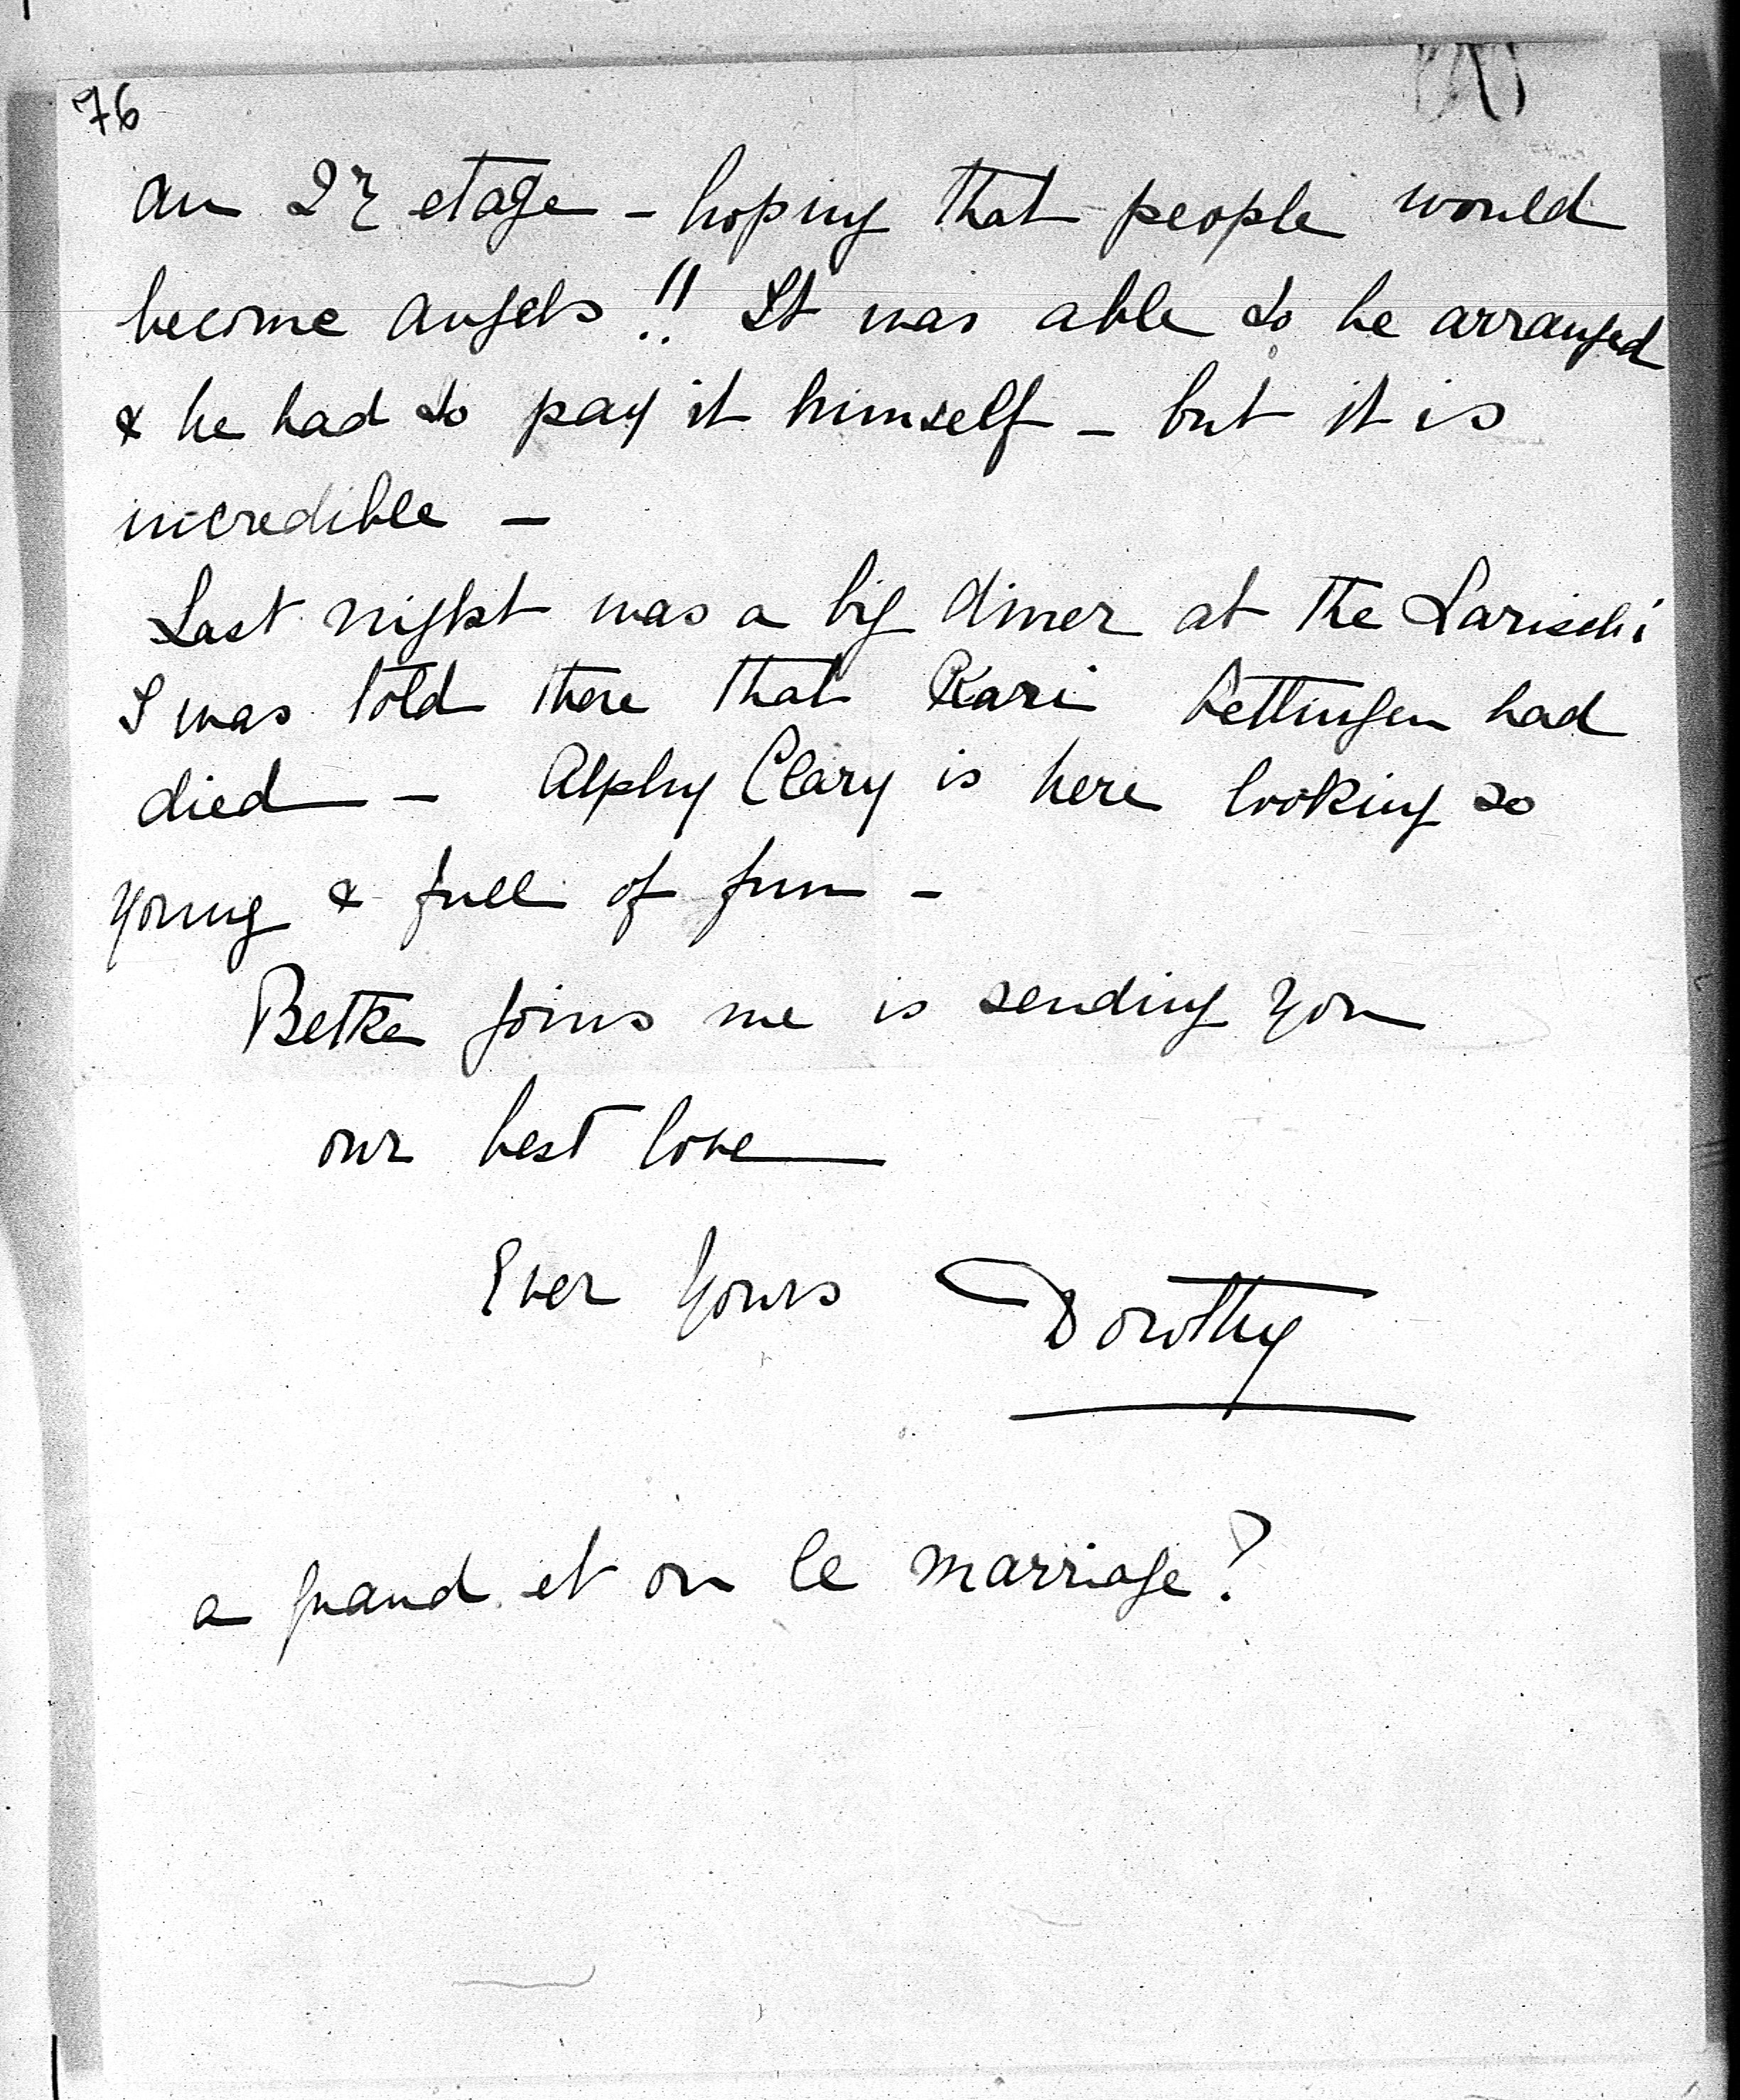 76
au 2e etage - hoping that people would
become angels !! It was able to be arranged
& he had to pay it himself - but it is
incredible -
Last night was a big diner at the Larischi
I was told there that Kari Oettingen had
died - Alphy Clary is here looking so
young & full of fun -
Betka joins me is sending you
our best love
Ever Yours Dorothy
a quand et ou le marriage?